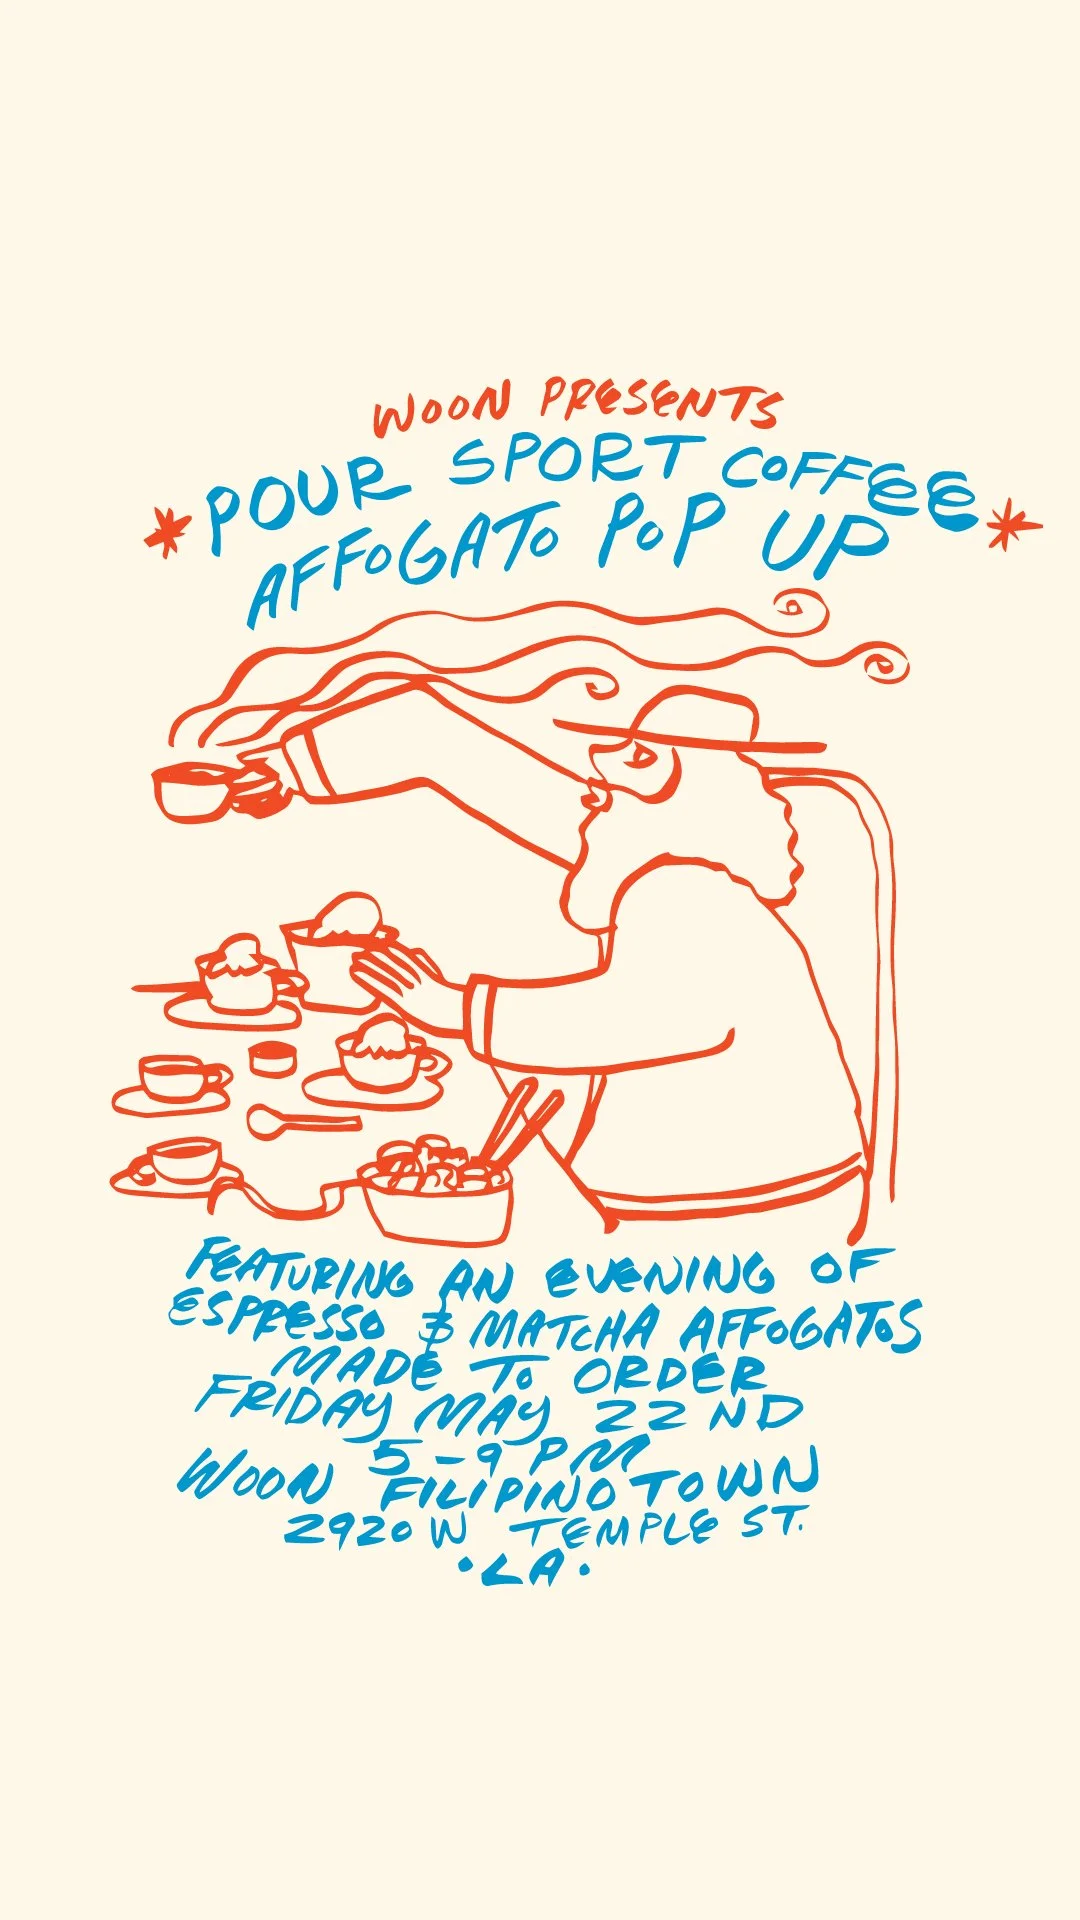 WOON PRESENTS
POUR SPORT COFFEE
AFFOGATO POP UP
FEATURING AN EVENING OF
ESPRESSO & MATCHA AFFOGATOS
MADE TO ORDER
FRIDAY MAY 22ND
5-9 PM
WOON FILIPINOTOWN
2920 W TEMPLE ST.
•LA•